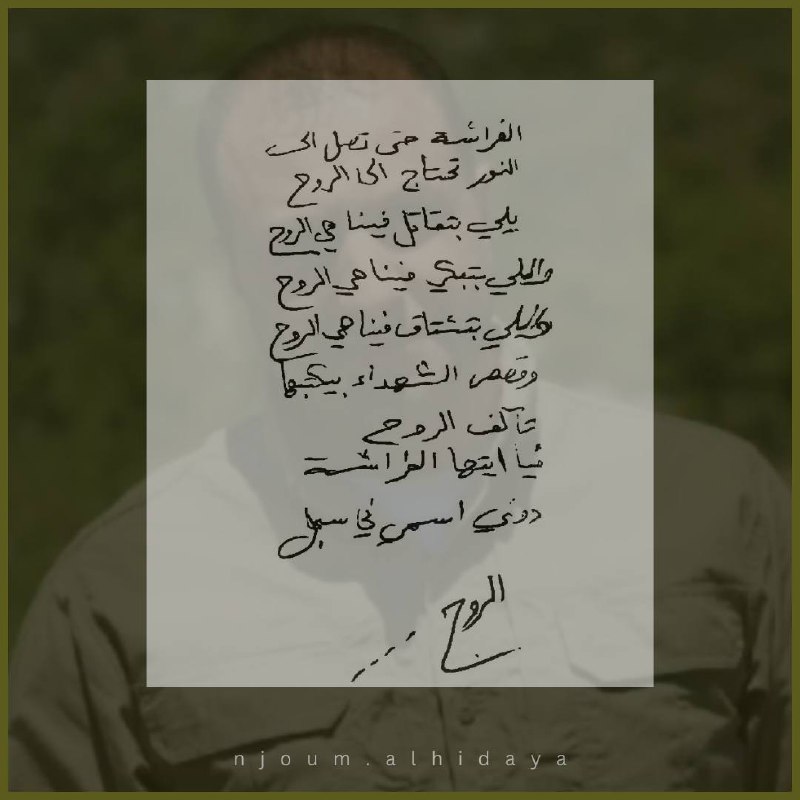 الفراشة حتى تصل الى
النور تحتاج الى الروح
يلي بتقاتل فينا هي الروح
واللي بتبكي فينا هي الروح
واللي بتشتاق فينا هي الروح
وقصص الشهداء بيكتبها
تآلف الروح
فيا ايتها الفراشة
دوني اسمي في سجل
الروح
njoum.alhidaya